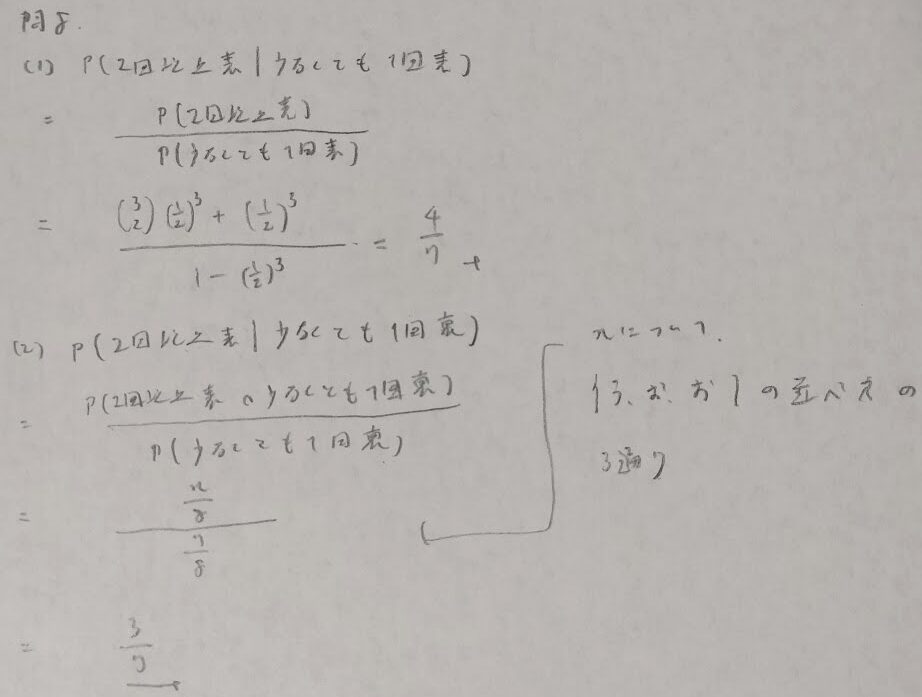 問8.
(1) P(2回以上表 | 少なくとも1回表)
= P(2回以上表) / P(少なくとも1回表)
= ( (3 2) (1/2)^3 + (1/2)^3 ) / ( 1 - (1/2)^3 ) = 4/7
(2) P(2回以上表 | 少なくとも1回裏)
= P(2回以上表 ∩ 少なくとも1回裏) / P(少なくとも1回裏)
= (n/8) / (7/8)
= 3/7
nについて.
{う、お、お}の並べ方の
3通り